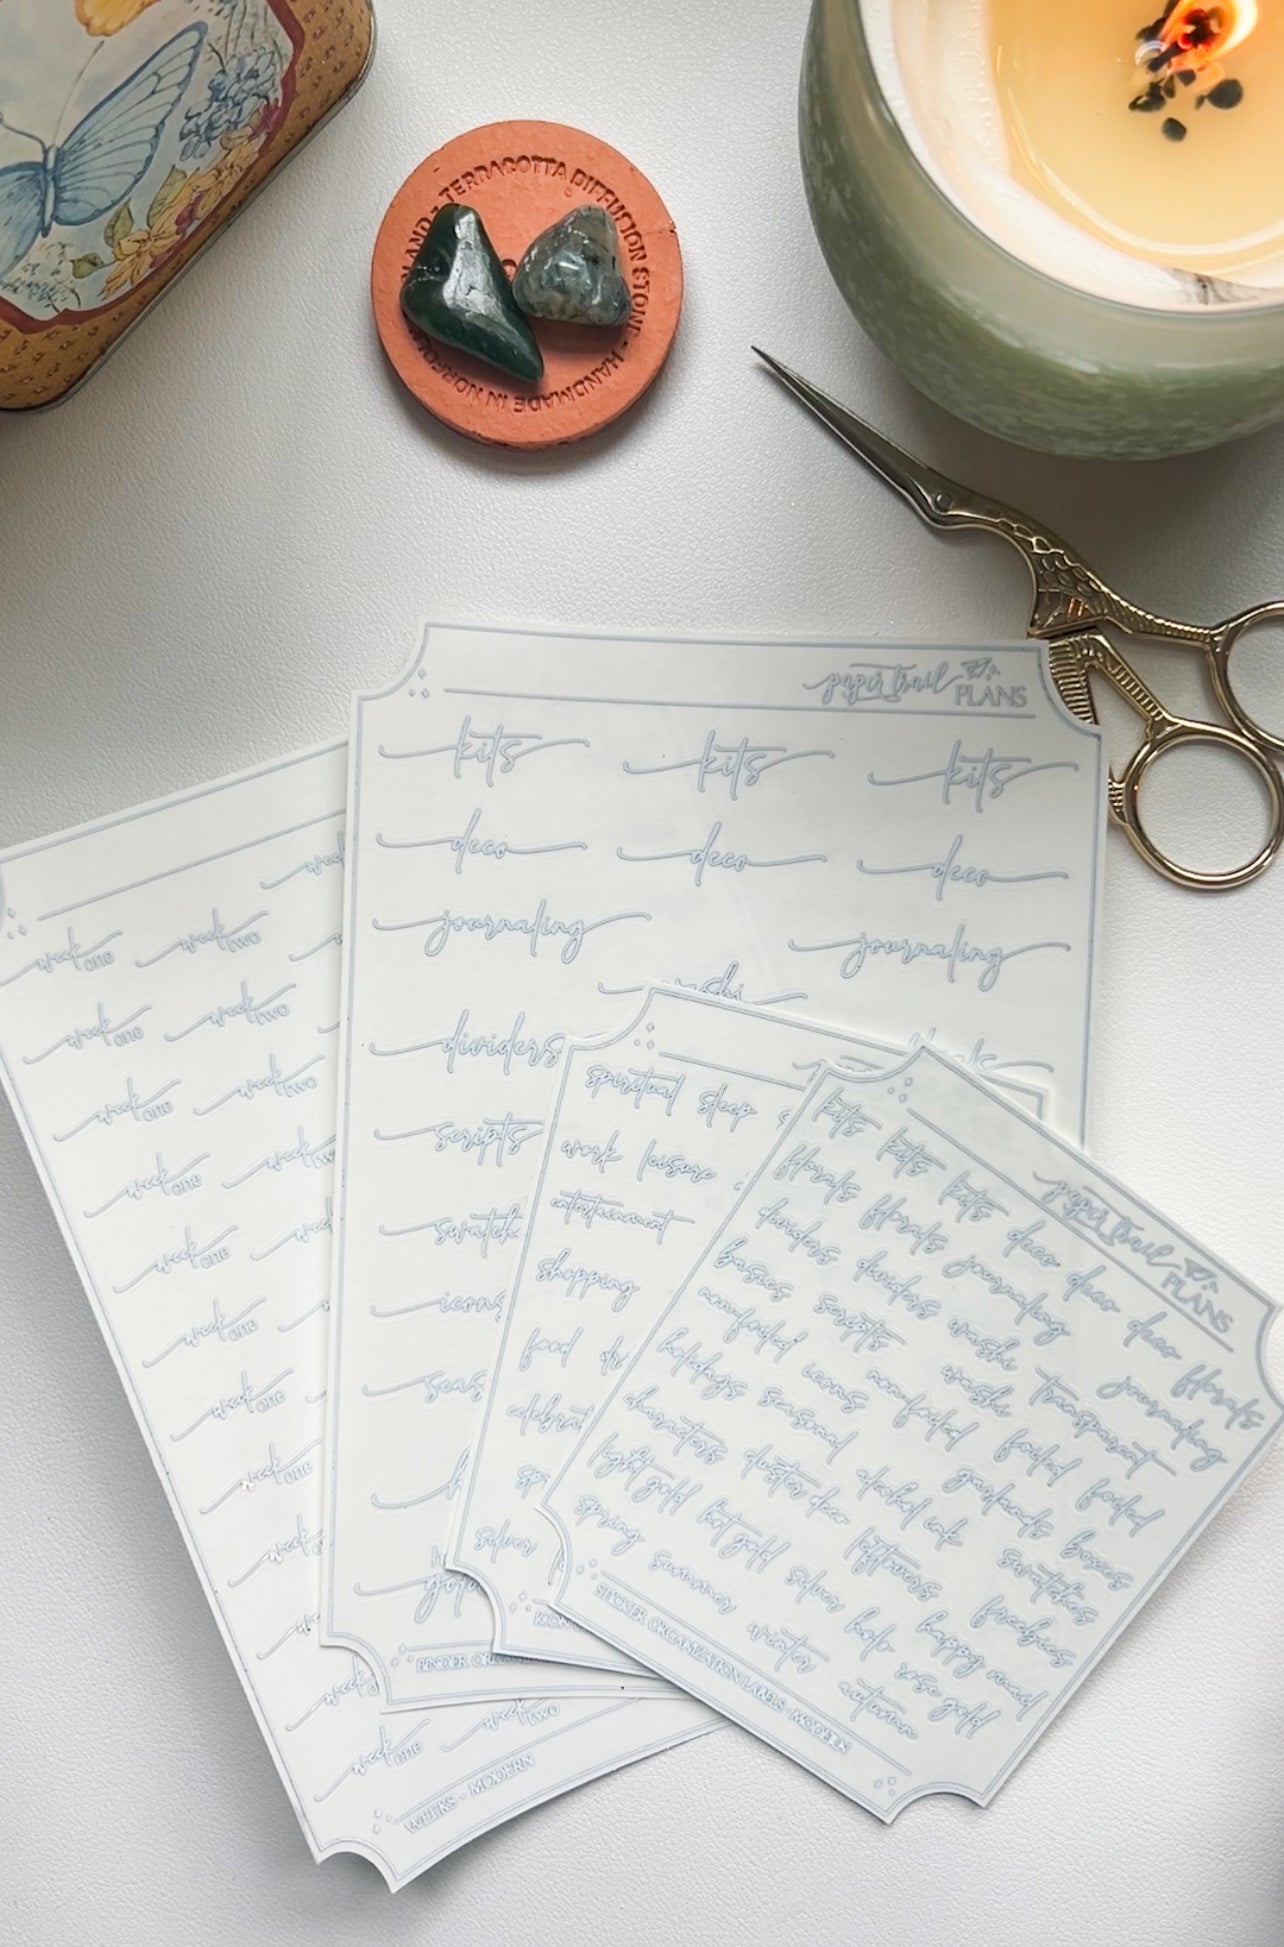 TERRACOTTA DIFFUSION STONE - HANDMADE IN
paper trail PLANS
kits kits kits
deco deco deco
journaling journaling
washi
dividers
scripts
icons
week one week two
week one week two
week one week two
week one
week one
week one
week one
week one
week one week two
WEEKS - MODERN
spiritual sleep
work leisure
entertainment
shopping
food
silver
paper trail PLANS
kits kits kits deco deco deco florals
florals florals journaling journaling
dividers dividers washi washi transparent
basics scripts foiled foiled
nonfoiled icons nonfoiled garlands boxes
holidays seasonal alcohol ink swatches
characters cluster deco leftovers freebies
light gold hot gold silver holo rose gold happy mail
spring summer winter autumn
STICKER ORGANIZATION LABELS - MODERN